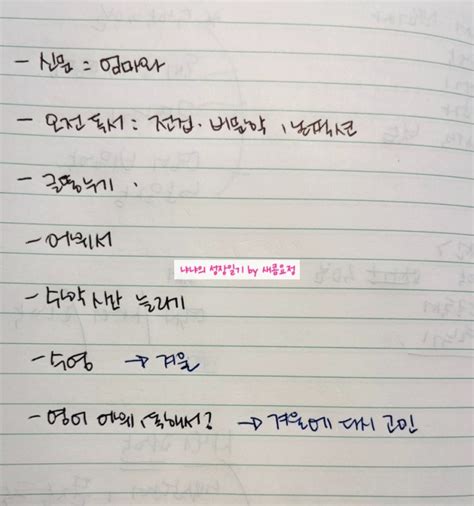 - 신밈 = 엄마와
- 오전 독서 : 전집. 비문학,
- 글똥누기.
- 어휘서
나나의 성장일기 by 새콤요정
- 수학 시간 늘리기
- 수영 → 겨울
- 영어 어휘, 독해서? → 겨울에 다시 고민